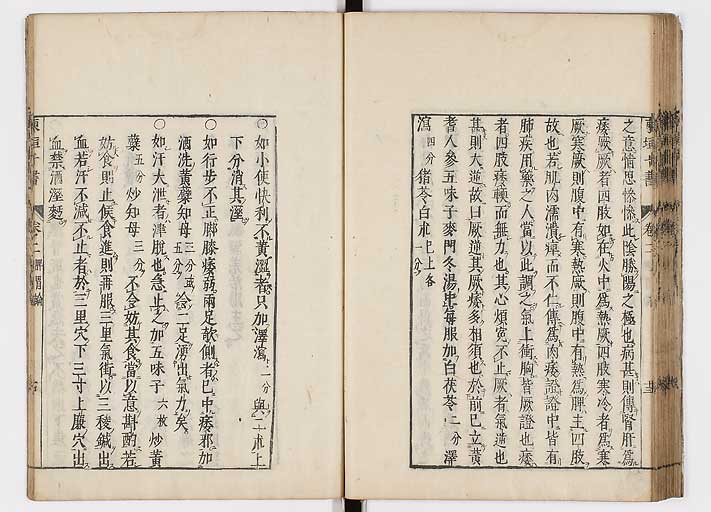 之意懵思慘慘此陰勝陽之極也病甚則傳腎肝爲
痿厥厥者四肢如在火中爲熱厥四肢寒冷者爲寒
厥寒厥則腹中有寒熱厥則腹中有熱爲脾主四肢
故也若肌肉濡潰痺而不仁傳爲肉痿證證中皆有
肺疾用藥之人當以此調之氣上衝胸皆厥證也痿
者四肢痿軟而無力也其心煩寃不止厥者氣逆也
甚則大逆故曰厥逆其厥痿多相須也於前已立黃
耆人參五味子麥門冬湯中每服加白茯苓二分澤
瀉四分猪苓白朮已上各一分
○如小便快利不黃澀者只加澤瀉二分與二朮上
下分消其溼
○如行步不正脚膝痿弱兩足欹側者已中痿邪加
酒洗黃蘗知母三分或五分令二足湧出氣力矣
○如汗大泄者津脫也急止之加五味子六枚炒黃
蘗五分炒知母三分不令妨其食當以意斟酌若
妨食則止候食進則再服三里氣街以三稜鍼出
血若汗不減不止者於三里穴下三寸上廉穴出
血禁酒溼麪
東垣十書
卷二
脾胃論